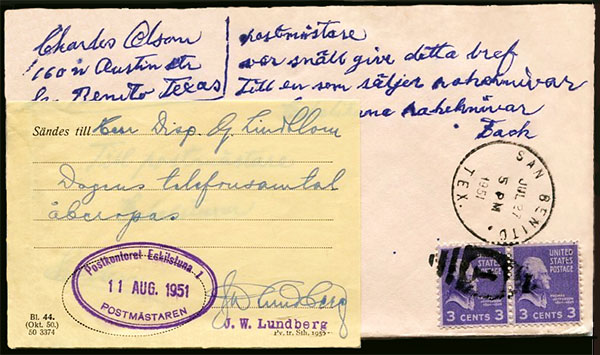 Charles Olson
160 W Austin Str
San Benito Texas
postmästare
var snäll give detta bref
till en som säljer rakeknivar
rakeknivar
Tack
Sändes till Herr Disp. G. Lindblom
Dagens telefonsamtal
åberopas
Postkontoret Eskilstuna 1
11 AUG. 1951
POSTMÄSTAREN
JW Lundberg
J. W. Lundberg
Pv. tr. Sth. 1935
Bl. 44.
(Okt. 50.)
50 3374
SAN BENITO.
JUL 27
5 PM
1951
TEX.
UNITED
STATES
POSTAGE
3 CENTS 3
3 CENTS 3